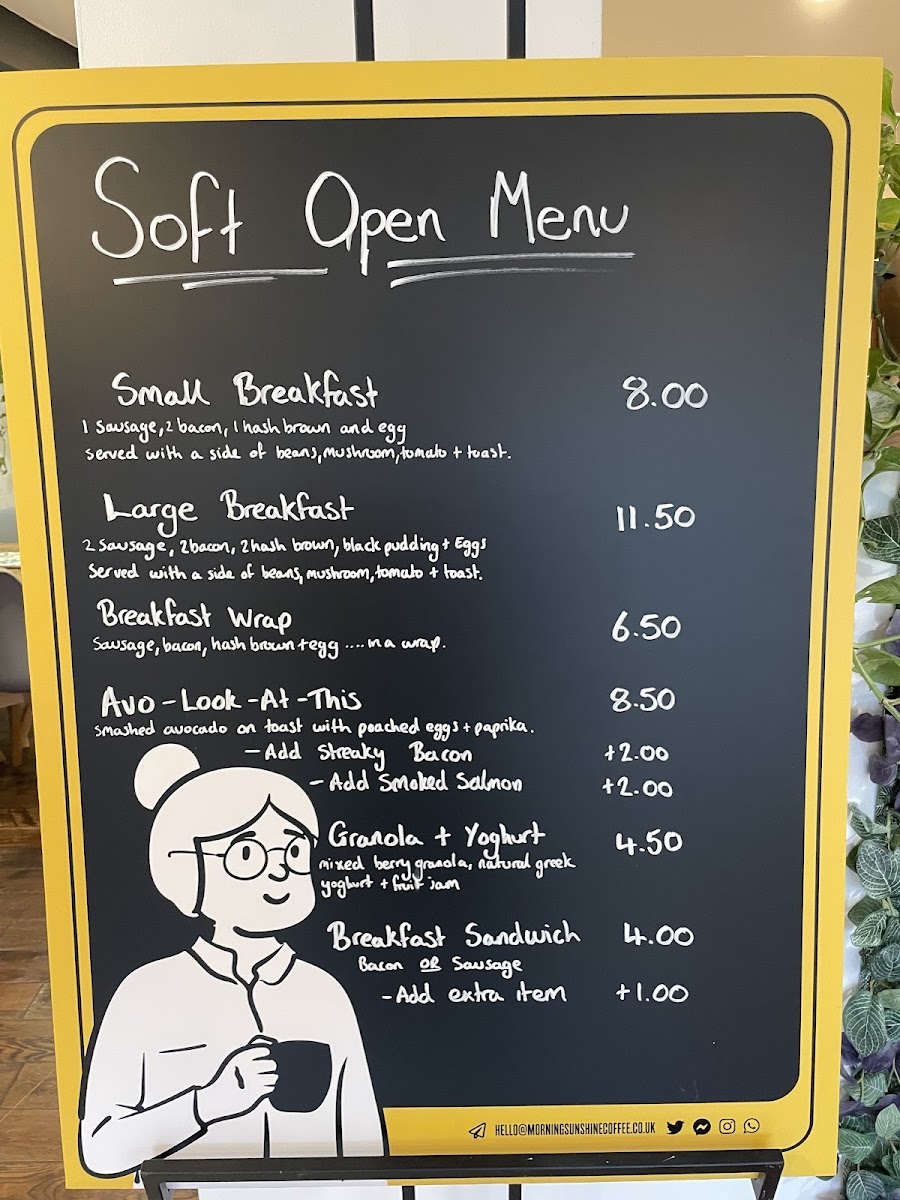 Soft Open Menu
Small Breakfast 8.00
1 Sausage, 2 bacon, 1 hash brown and egg
served with a side of beans, mushroom, tomato + toast.
Large Breakfast 11.50
2 Sausage, 2 bacon, 2 hash brown, black pudding + Eggs
Served with a side of beans, mushroom, tomato + toast.
Breakfast Wrap 6.50
Sausage, bacon, hash brown + egg .... in a wrap.
Avo - Look - At - This 8.50
Smashed avocado on toast with poached eggs + paprika.
- Add Streaky Bacon +2.00
- Add Smoked Salmon +2.00
Granola + Yoghurt 4.50
mixed berry granola, natural greek
yoghurt + fruit jam
Breakfast Sandwich 4.00
Bacon OR Sausage
- Add extra item +1.00
HELLO@MORNINGSUNSHINECOFFEE.CO.UK